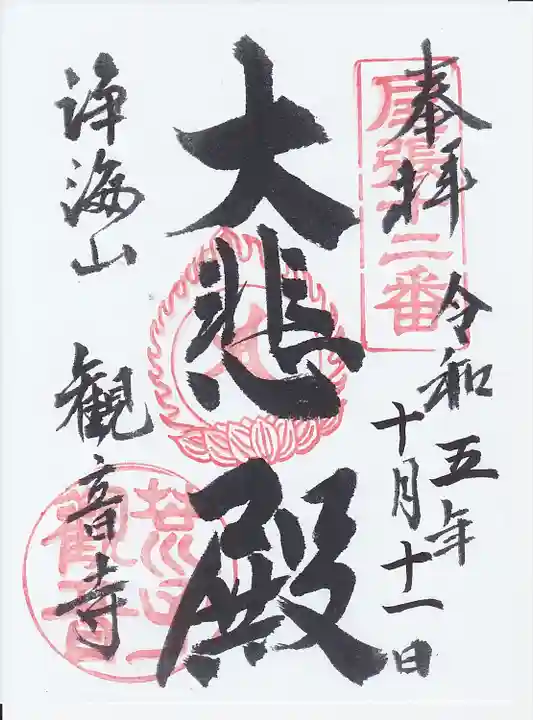 奉拝
令和五年
十月十一日
尾張十二番
大悲殿
浄海山
観音寺
観音